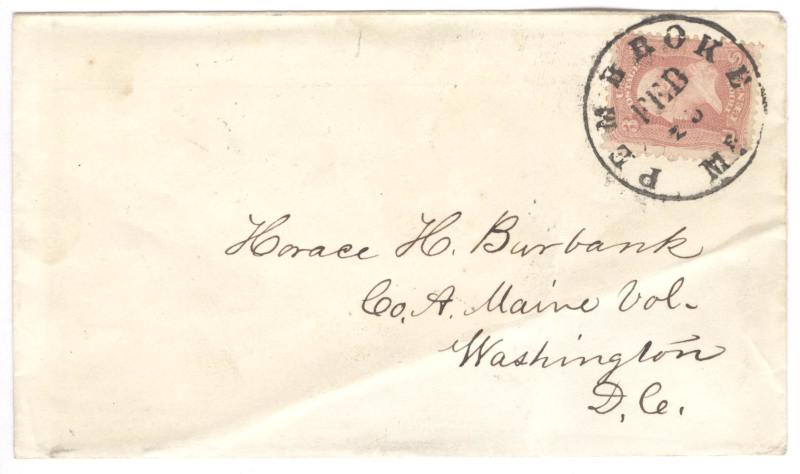 PEMBROKE ME
FEB
Horace H. Burbank
Co. A. Maine Vol-
Washington
D. C.